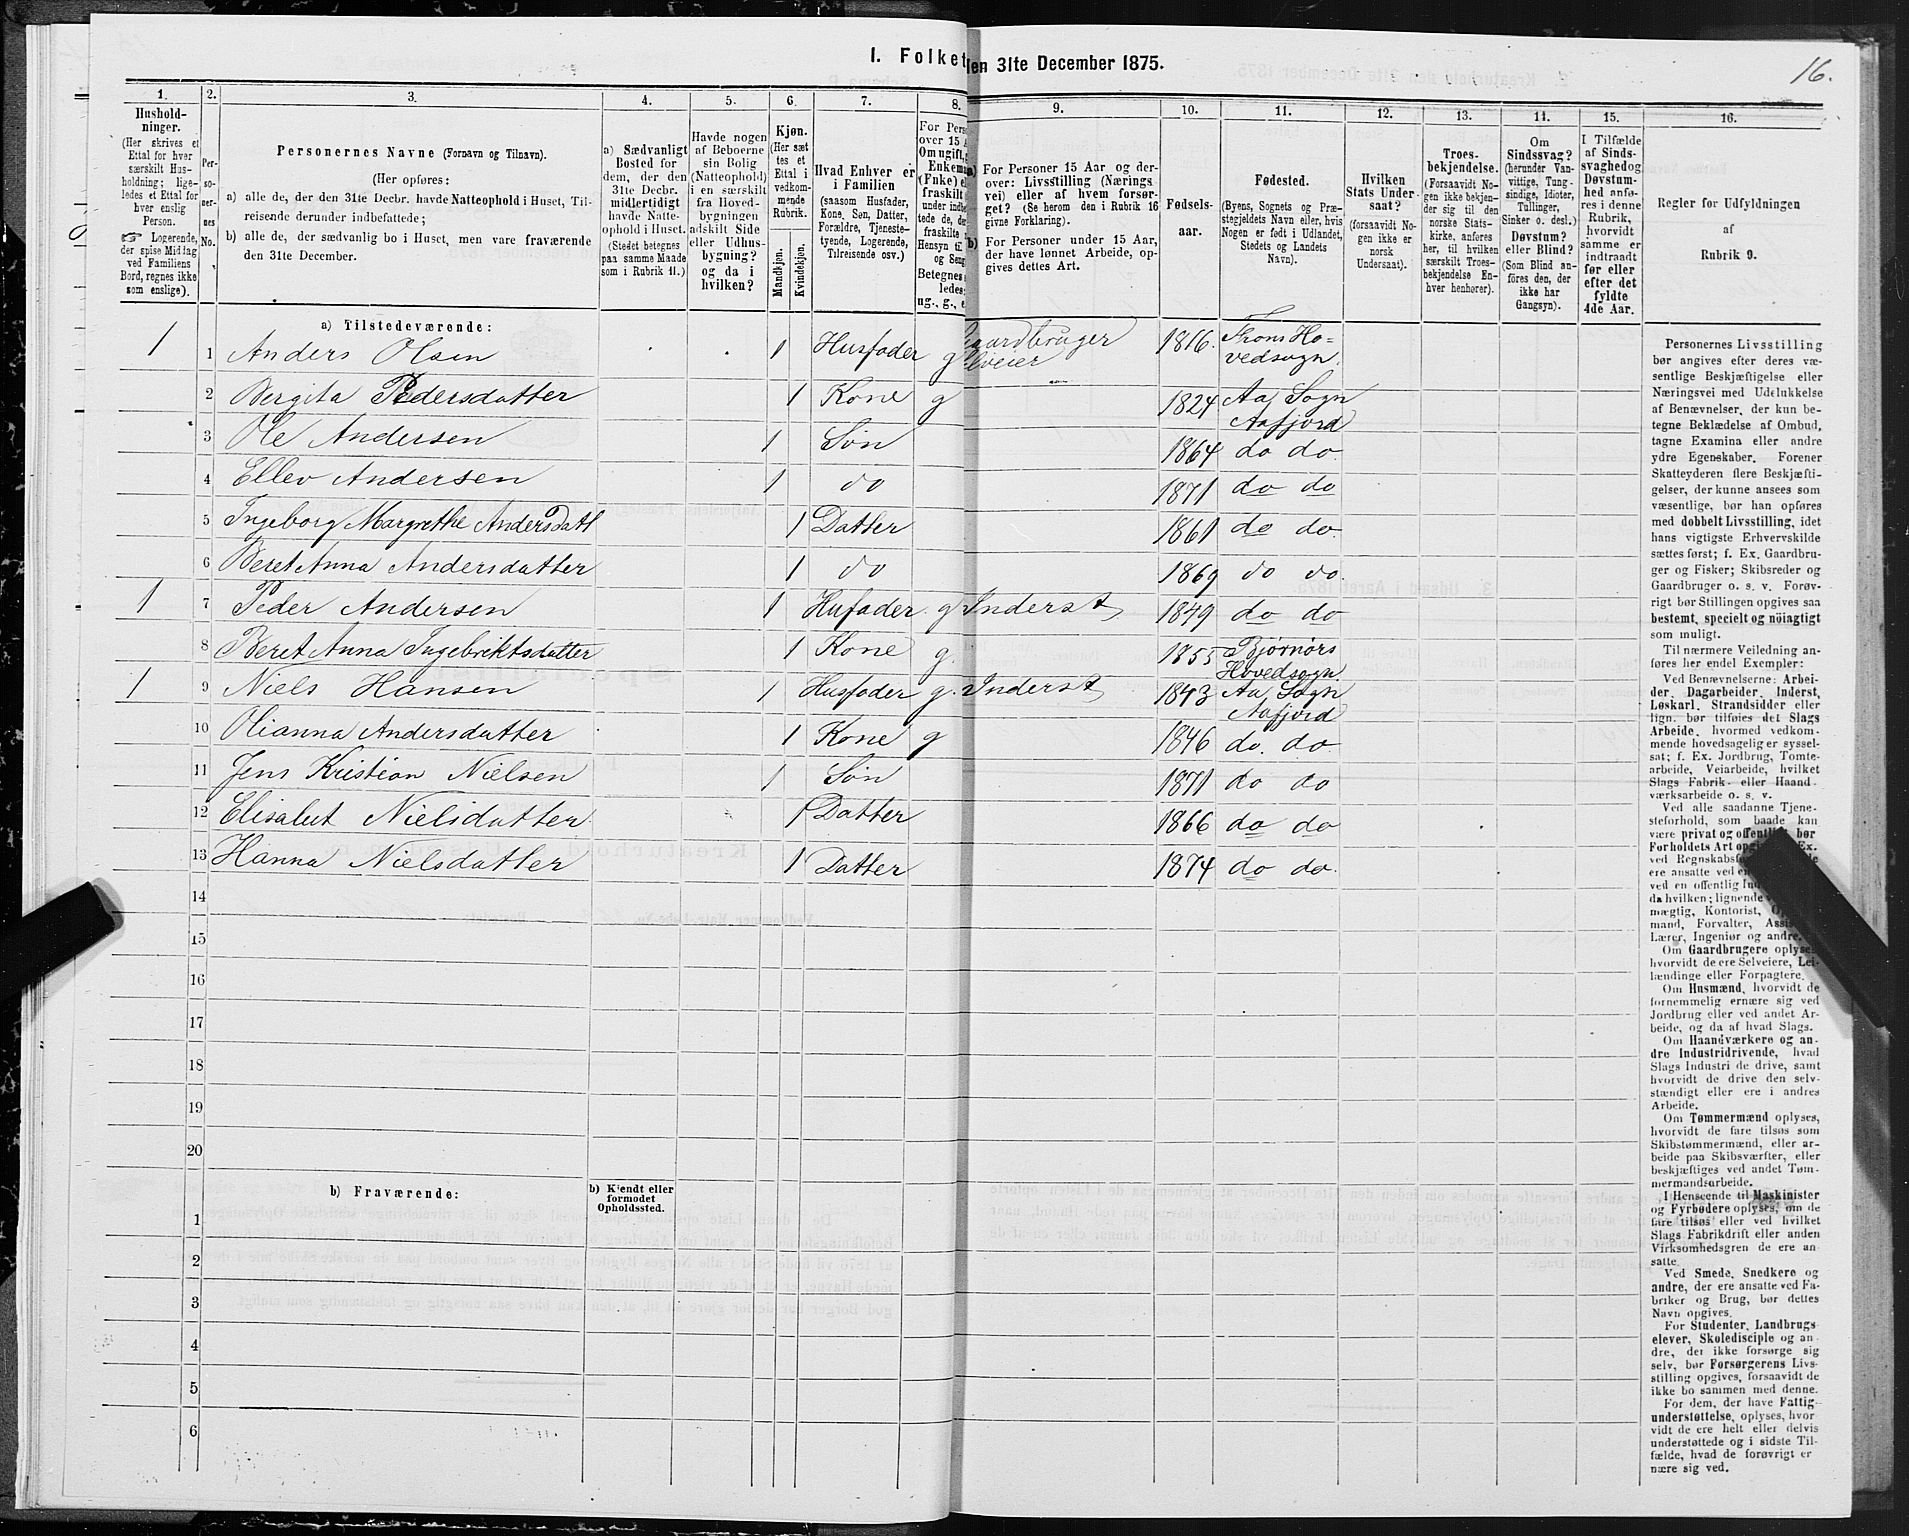 I. Folket
den 31te December 1875.
16.
1.
2.
3.
4.
5.
6.
7.
8.
9.
10.
11.
12.
13.
14.
15.
16.
Hushold-
ninger.
(Her skrives et
Ettal for hver
særskilt Hus-
holdning; lige-
ledes et Ettal for
hver enslig
Person.
☞ Logerende,
der spise Middag
ved Familiens
Bord, regnes ikke
som enslige).
Per-
so-
ner-
nes
No.
Personernes Navne (Fornavn og Tilnavn).
(Her opføres:
a) alle de, der den 31te Decbr. havde Natteophold i Huset, Til-
reisende derunder indbefattede;
b) alle de, der sædvanlig bo i Huset, men vare fraværende
den 31te December.
a) Sædvanligt
Bosted for
dem, der den
31te Decbr.
midlertidigt
havde Natte-
ophold i Huset.
(Stedet betegnes
paa samme Maade
som i Rubrik 11.)
Havde nogen
af Beboerne
sin Bolig
(Natteophold)
i en særskilt
fra Hoved-
bygningen
adskilt Side
eller Udhus-
bygning?
og da i
hvilken?
Kjøn.
(Her sæt
tes et
Ettal i
vedkom-
mende
Rubrik.
Mandkjøn.
Kvindekjøn.
Hvad Enhver er
i Familien
(saasom Husfader,
Kone, Søn, Datter,
Forældre, Tjeneste-
tyende, Logerende,
Tilreisende osv.)
For Perso
over 15 A
Om ugift,
Enkema
(Fnke) el
fraskilt
under indbe
tede de, de
fraskilte
Hensyn til
og Seng
Betegnes
ledes:
ug., g., e
a) For Personer 15 Aar og der-
over: Livsstilling (Nærings
vei) eller af hvem forsør-
get? (Se herom den i Rubrik 16
givne Forklaring).
b) For Personer under 15 Aar,
der have lønnet Arbeide, op-
gives dettes Art.
Fødsels-
aar.
Fødested.
(Byens, Sognets og Præ-
stegjeldets Navn eller, hvis
Nogen er født i Udlandet,
Stedets og Landets
Navn).
Hvilken
Stats Under-
saat?
(forsaavidt No-
gen ikke er
norsk
Undersaat).
Troes-
bekjendelse.
(Forsaavidt No-
gen ikke bekjen-
der sig til den
norske Stats-
kirke, anføres
her, til hvilken
særskilt Troes-
bekjendelse En-
hver henhører).
Om
Sindssvag?
(herunder Van-
vittige, Tung-
sindige, Idioter,
Tullinger,
Sinker o. desl.)
Døvstum?
eller Blind?
(Som Blind an-
føres den, der
ikke har
Gangsyn).
I Tilfælde
af Sinds-
svaghed og
Døvstum-
hed anfø-
res i denne
Rubrik,
hvorvidt
samme er
indtraadt
før eller
efter det
fyldte
4de Aar.
Regler for Udfyldningen
af
Rubrik 9.
a) Tilstedeværende:
1 1 Anders Olsen 1 Husfader g Gaardbruger Selveier 1816. Frons Ho=
vedsogn.
2 Bergita Pedersdatter 1 Kone g 1824 Aa Sogn
Aafjord
3 Ole Andersen 1 Søn 1864 do do
4 Ellev Andersen 1 do 1871 do do
5 Ingeborg Margrethe Andersdatt 1 Datter 1861 do do.
6 Beret Anna Andersdatter 1 do 1869 do do.
1 7 Peder Andersen 1 Hufader. g. Inderst 1849 do do
8 Beret Anna Ingebriktsdatter 1 Kone g. 1855 Bjørnørs
Hovedsogn
1 9 Niels Hansen 1 Husfader g. Inderst 1843 Aa Sogn
Aafjord
10 Olianna Andersdatter 1 Kone g 1846 do. do
11 Jens Kristian Nielsen 1 Søn 1871 do do
12 Elisabet Nielsdatter. 1 Datter 1866 do do
13 Hanna Nielsdatter 1 Datter 1874 do do.
14
15
16
17
18
19
20
b) Fraværende:
b) Kjendt eller
formodet
Opholdssted.
1
2
3
4
5
6
Personernes Livsstilling
bør angives efter deres væ-
sentlige Beskjæftigelse eller
Næringsvei med Udelukkelse
af Benævnelser, der kun be-
tegne Beklædelse af Ombud,
tagne Examina eller andre
ydre Egenskaber. Forener
Skatteyderen flere Beskjæfti-
gelser, der kunne ansees som
væsentlige, bør han opføres
med dobbelt Livsstilling, idet
hans vigtigste Erhvervskilde
sættes først; f. Ex. Gaardbru-
ger og Fisker; Skibsreder og
Gaardbruger o. s. v. Forøv-
rigt bør Stillingen opgives saa
bestemt, specielt og nøiagtigt
som muligt.
Til nærmere Veiledning an-
føres her endel Exempler:
Ved Benævnelserne: Arbei-
der, Dagarbeider, Inderst,
Løskarl, Strandsidder eller
lign. bør tilføies det Slags
Arbeide, hvormed vedkom-
mende hovedsagelig er syssel-
sat; f. Ex. Jordbrug, Tomte-
arbeide, Veiarbeide, hvilket
Slags Fabrik- eller Haand
værksarbeide o. s. v.
Ved alle saadanne Tjene-
steforhold, som baade kan
være privat og offentlig, bør
Forholdets Art opgives
Ex.
ved Regnskabsfø
ere ansatte ved en
ved en offentlig In
da hvilken; lignende
mægtig, Kontorist,
mand, Forvalter, Assis
Lærer, Ingeniør og andre.
Om Gaardbrugere oplyses,
hvorvidt de ere Selveiere, Lei-
lændinge eller Forpagtere.
Om Husmænd, hvorvidt de
fornemmelig ernære sig ved
Jordbrug eller ved andet Ar-
beide, og da af hvad Slags.
Om Haandværkere og an-
dre Industridrivende, hvad
Slags Industri de drive, samt
hvorvidt de drive den selv-
stændigt eller ere i andres
Arbeide.
Om Tømmermænd oplyses,
hvorvidt de fare tilsøs som
Skibstømmermænd, eller ar-
beide paa Skibsværfter, eller
beskjæftiges ved andet Tøm-
mermandsarbeide.
I Henseende til Maskinister
og Fyrbødere oplyses, om de
fare tilsøs eller ved hvilket
Slags Fabrikdrift eller anden
Virksomhedsgren de ere an-
satte.
Ved Smede, Snedkere og
andre, der ere ansatte ved Fa-
briker og Brug, bør dettes
Navn opgives.
For Studenter, Landbrugs-
elever, Skoledisciple og an-
dre, der ikke forsørge sig
selv, bør Forsørgerens Livs-
stilling opgives, forsaavidt de
ikke bo sammen med denne.
For dem, der have Fattig-
understøttelse, oplyses, hvor-
vidt de ere helt eller delvis
understøttede og i sidste Til-
fælde, hvad de forøvrigt er
nære sig ved.